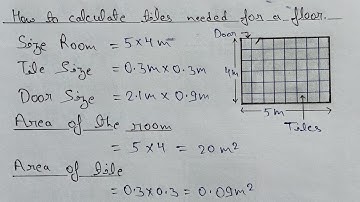 How to calculate tiles needed for a floor.
Size Room = 5×4 m
Tile Size = 0.3m × 0.3m
Door Size = 2.1m × 0.9m
Area of the room
= 5×4 = 20 m²
Area of tile
= 0.3×0.3 = 0.09m²
Door
4m
5m
Tiles